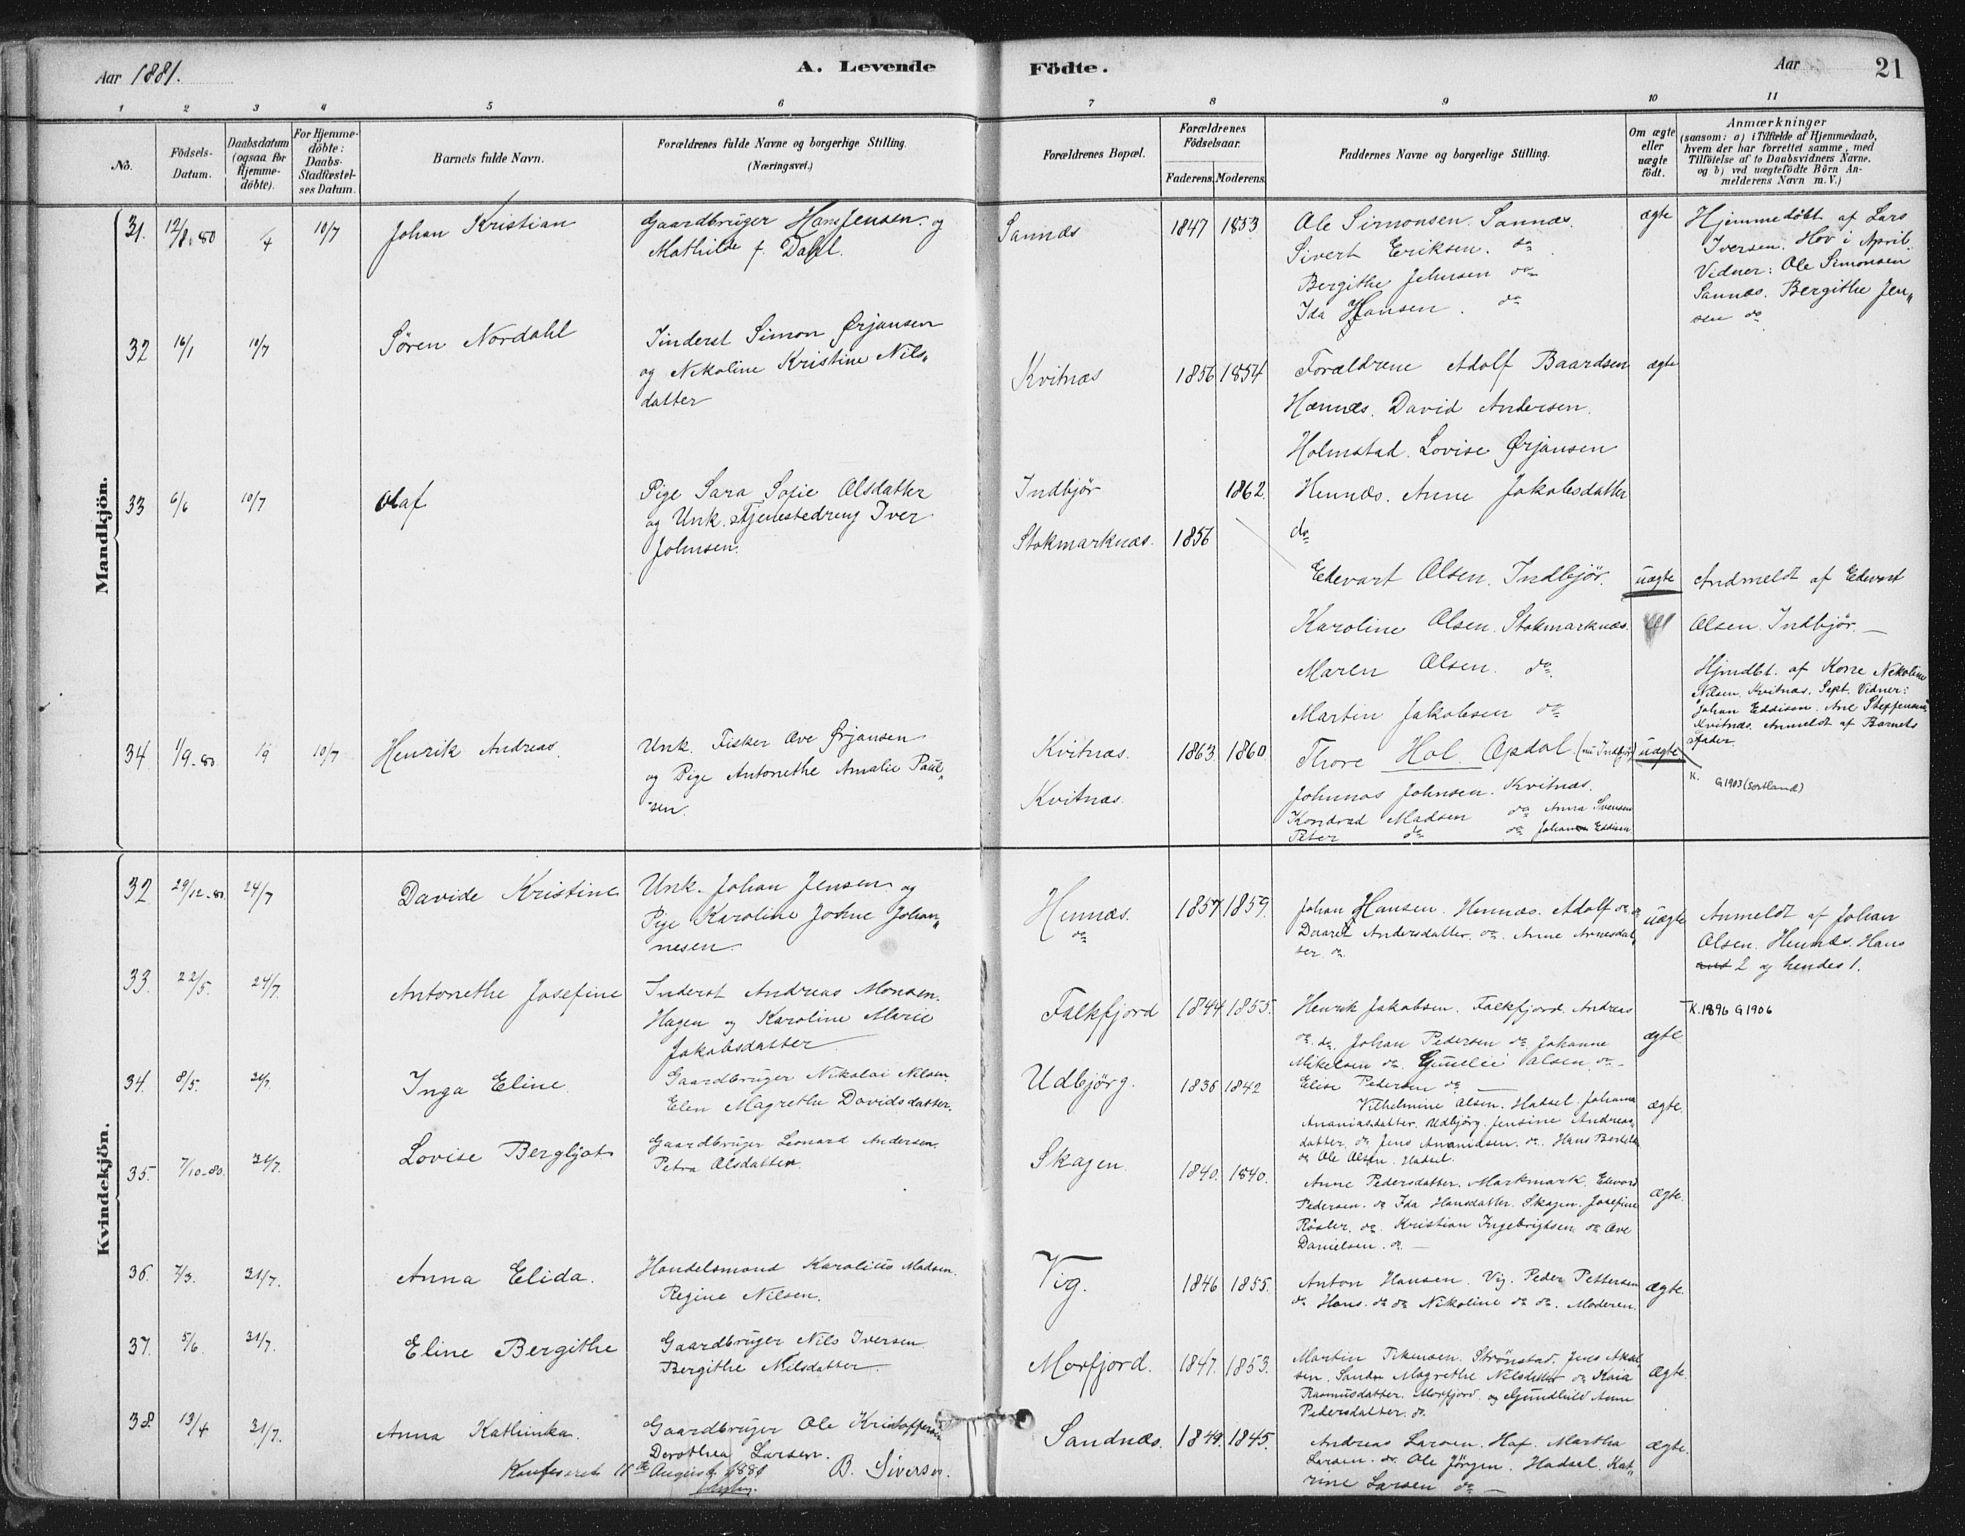 Aar 1881.
A. Levende Födte.
Aar
21
1 2 3 4 5 6 7 8 9 10 11
No.
Födsels-Datum.
Daabsdatum (ogsaa for Hjemme-döbte).
For Hjemme-döbte: Daabs-Stadfæstel-ses Datum.
Barnets fulde Navn.
Forældrenes fulde Navne og borgerlige Stilling. (Næringsvei.)
Forældrenes Bopæl.
Forældrenes Födselsaar.
Faderens. Moderens.
Faddernes Navne og borgerlige Stilling.
Om ægte eller uægte födt.
Anmærkninger (saasom: a) i Tilfælde af Hjemmedaab, hvem der har forrettet samme, med Tilföielse af to Daabsvidners Navne, og b) ved uægtefödte Börn An-melderens Navn m. V.)
Mandkjön.
31. 12/8-80 /4 10/7 Johan Kristian
Gaardbruger Hans Jensen og
Mathilde f. Dahl.
Sannæs 1847 1853
Ole Simonsen Sannæs.
Sivert Eriksen. do
Bergithe Johnsen do
Ida Hansen. do
ægte
Hjemmedøbt af Lars
Iversen. Hov i April.
Vidner: Ole Simonsen
Sannæs. Bergithe Jen„
sen do
32 16/1 10/7 Søren Nordahl
Inderst Simon Ørjansen
og Nekoline Kristine Nils„
datter
Kvitnæs 1856 1854
Forældrene Adolf Baardsen
Hennæs. David Andersen.
Holmstad. Lovise Ørjansen
Hennæs. Anne Jakobsdatter
do
ægte
33 6/6 10/7 Olaf
Pige Sara Sofie Olsdatter
og Unk. Tjenestedreng Iver
Johnsen.
Indbjør 1862.
Stokmarknæs. 1856
Edevart Olsen. Indbjør.
Karoline Olsen. Stokmarknæs.
Maren Olsen. do
Martin Jakobsen do
Thore Hol. Opdal (nu Indbjør)
uægte
Andmeldt af Edevart
Olsen. Indbjør. —
34 1/9-80 /9 10/7 Henrik Andreas.
Unk. Fisker Ove Ørjansen
og Pige Antonethe Amalie Paul„
sen.
Kvitnæs. 1863. 1860.
Kvitnæs.
Johnnas Johnsen. Kvitnæs.
Kondrad Madsen do Anna Svensen
Peter do do Johan Eddisen
uægte
Hjmdbt. af Kone Nekoline
Nilsen. Kvitnæs. Sept. Vidner:
Johan Eddisen. Ane Steffensen
Kvitnæs. Anmeldt af Barnets
Fader.
K. G 1903 (Sortland)
Kvindekjön.
32 29/12-80 24/7 Davide Kristine
Unk. Johan Jensen og
Pige Karoline Johne Johan„
nesen
Hennæs. 1857 1859.
do
Johan Hansen. Hennæs. Adolf do do
Andersdatter. do. Anne Arnesdat„
ter. do
uægte
Anmeldt af Johan
Olsen. Hennæs. Hans
2 og hendes 1.
33. 22/5. 24/7. Antonethe Josefine
Inderst Andreas Monsen.
Hagen og Karoline Marie
Jakobsdatter
Falkfjord 1844 1855.
Henrik Jakobsen. Falkfjord. Andreas
do. do. Johan Pedersen do Johanne
Mikelsen do. Olsen do
Elise Pedersen do
ægte
K. 1896 G 1906
34. 8/5. 24/7. Inga Eline.
Gaardbruger Nikolai Nilsen.
Elen Magrethe Davidsdatter.
Udbjørg. 1836 1842
Vilhelmine Olsen. Hadsel. Johanna
Ananiasdatter. Udbjørg. Jensine Andreas„
datter. do Jens do. Hans
do Ole Olsen. Hadsel.
ægte.
35. 7/10-80. 31/7. Lovise Bergljot
Gaardbruger Leonard Andersen.
Petra Olsdatter.
Skagen. 1840. 1840.
Anne Pedersdatter. Markmark. Edvard
Pedersen. do Ida Hansdatter. Skagen. Josefine
Røsler. do. Kristian Ingebrigtsen do Ove
Danielsen. do —
Ægte.
36. 7/3. 31/7. Anna Elida.
Handelsmand Karolius Madsen.
Regine Nilsen.
Vig. 1846 1855.
Anton Hansen. Vig. Peder Pettersen
do Hans. do do Nikoline do do. Moderen.
ægte.
37. 5/6. 31/7. Eline Bergithe
Gaardbruger Nils Iversen
Bergithe Nilsdatter
Morfjord. 1847. 1853.
Martin Strønstad. Jens
sen. Magrethe Nilsdatter do Kaia
Rasmusdatter. Morfjord. og Gundhild Anne
Pedersdatter. do
Ægte.
38. 13/4 31/7. Anna Kathinka.
Gaardbruger Ole Kristoffersen
Dorothea Larsen.
Sandnæs. 1849. 1845.
Andreas Larsen. Haf. Martha
Larsen. do. Ole Jørgen. Hadsel. Kat„
rine Larsen do —
ægte.
Konfereret 11te August 1881 B. Sivertsen.